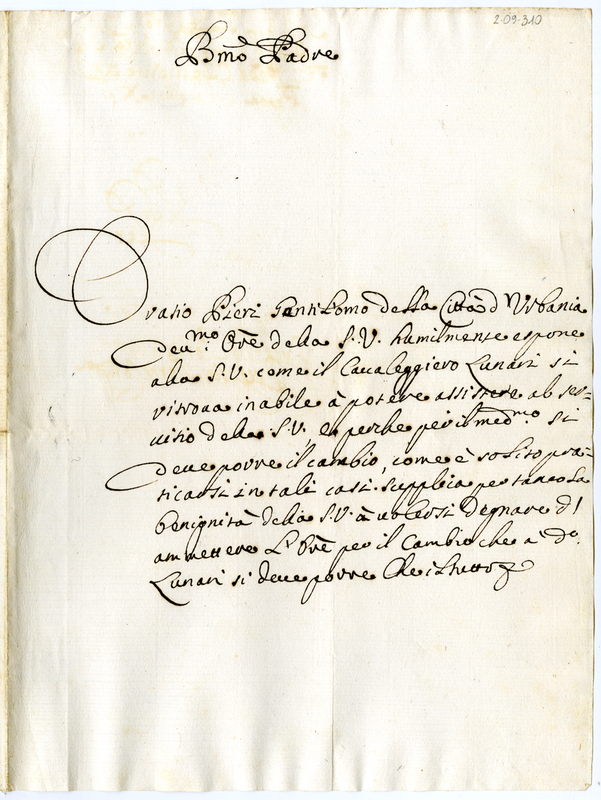 2-09-310
Bmo Padre
Oratio Pieri Gentilhomo della Città d'Urbania
deu.mo Ore della S.V. humilmente espone
alla S.V. come il Caualeggiero Lunari si
ritroua inabile à potere assistere al ser=
uitio della S.V., e perche per il med.mo si
deue porre il cambio, come è solito pra=
ticarsi in tali casi. supplica pertanto La
benignità della S.V. à uolersi degnare di
ammettere L'Ore per il Cambio che a do.
Lunari si deue porre Che il tutto